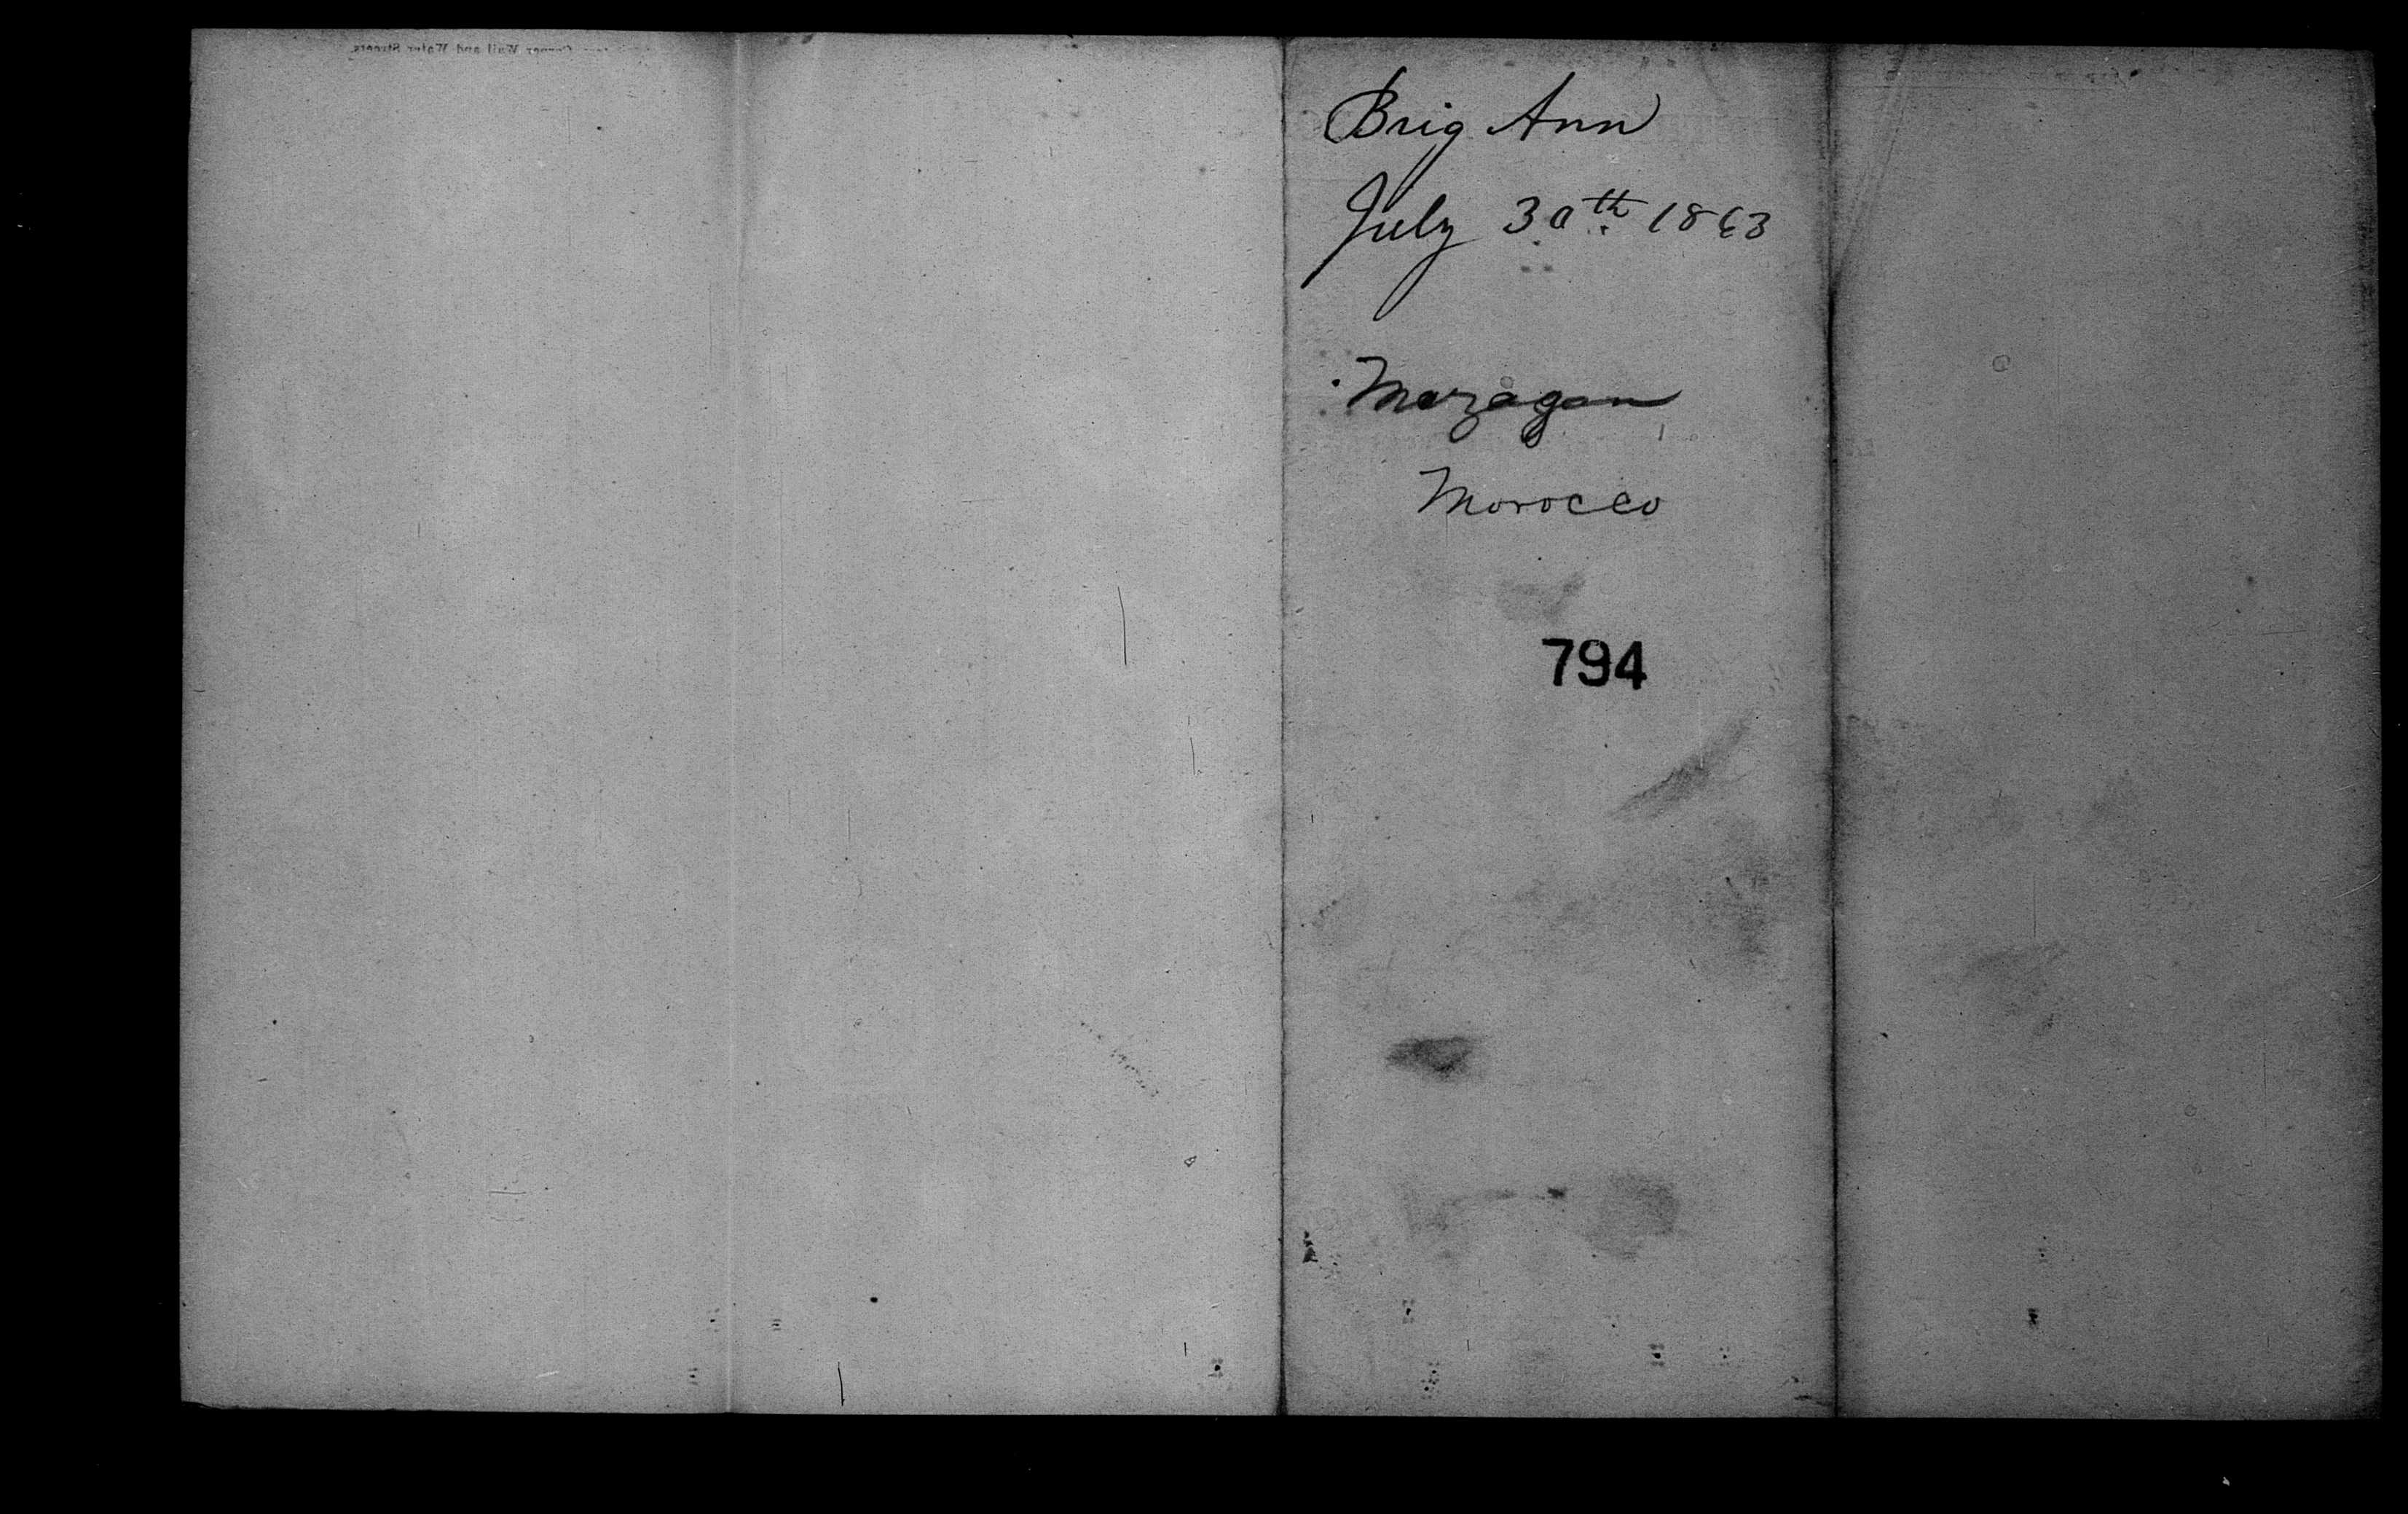 Corner Wall and Water Streets.
Brig Ann
July 30th 1863
Mazagan
Morocco
794